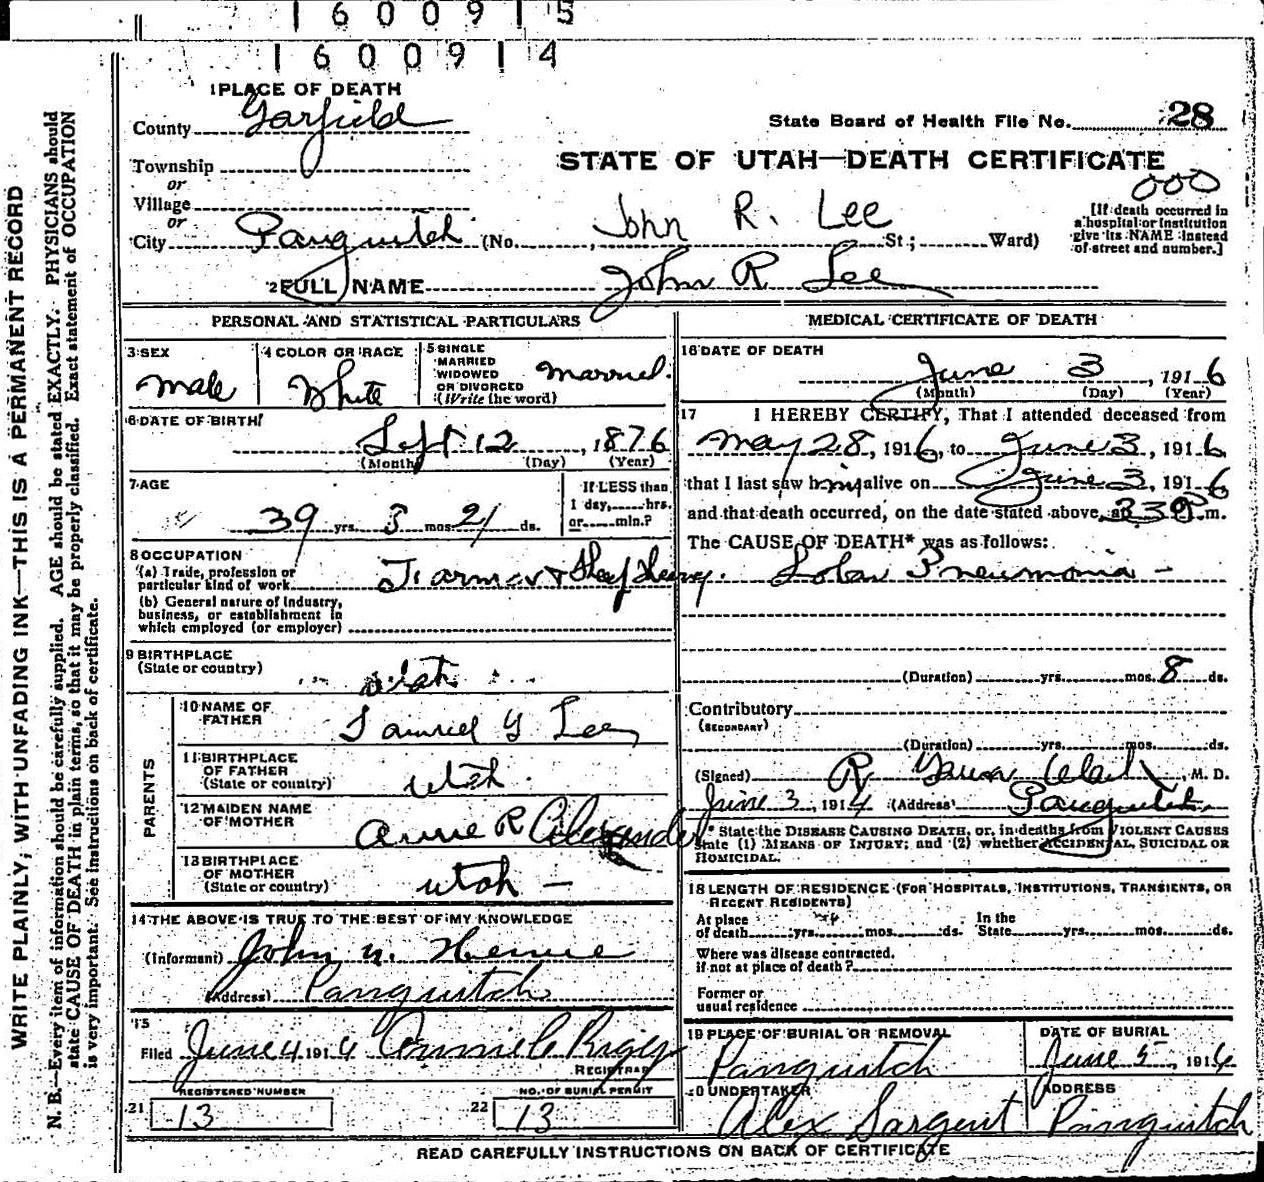 1600915
1600914
1 PLACE OF DEATH
County Garfield
State Board of Health File No. 28
Township
or
STATE OF UTAH—DEATH CERTIFICATE
000
Village
or
City Panguitch (No. , John R. Lee St.; Ward)
[If death occurred in
a hospital or institution
give its NAME instead
of street and number.]
2 FULL NAME John R Lee
PERSONAL AND STATISTICAL PARTICULARS
3 SEX
Male
4 COLOR OR RACE
White
5 SINGLE
MARRIED
WIDOWED
OR DIVORCED
(Write the word)
Married.
6 DATE OF BIRTH
Sept 12, 1876
(Month) (Day) (Year)
7 AGE
39 yrs. 8 mos. 21 ds.
If LESS than
1 day, hrs.
or min.?
8 OCCUPATION
(a) Trade, profession or
particular kind of work Farmer +
(b) General nature of industry,
business, or establishment in
which employed (or employer)
9 BIRTHPLACE
(State or country)
Utah
PARENTS
10 NAME OF
FATHER
Samuel G Lee
11 BIRTHPLACE
OF FATHER
(State or country)
Utah.
12 MAIDEN NAME
OF MOTHER
Anne R Alexander
13 BIRTHPLACE
OF MOTHER
(State or country)
Utah —
14 THE ABOVE IS TRUE TO THE BEST OF MY KNOWLEDGE
(Informant) John N. Henrie
(Address) Panguitch
15
Filed June 4 1916
REGISTRAR
REGISTERED NUMBER
21 13
NO. OF BURIAL PERMIT
22 13
MEDICAL CERTIFICATE OF DEATH
16 DATE OF DEATH
June 3, 1916
(Month) (Day) (Year)
17 I HEREBY CERTIFY, That I attended deceased from
May 28, 1916, to June 3, 1916
that I last saw him alive on June 3, 1916
and that death occurred, on the date stated above, at 230 P m.
The CAUSE OF DEATH* was as follows:
Lobar Pneumonia —
(Duration) yrs. mos. 8 ds.
Contributory
(SECONDARY)
(Duration) yrs. mos. ds.
(Signed) R Clark, M. D.
June 3, 1916 (Address) Panguitch.
* State the DISEASE CAUSING DEATH, or, in deaths from VIOLENT CAUSES
state (1) MEANS OF INJURY; and (2) whether ACCIDENTAL, SUICIDAL OR
HOMICIDAL.
18 LENGTH OF RESIDENCE (FOR HOSPITALS, INSTITUTIONS, TRANSIENTS, OR
RECENT RESIDENTS)
At place
of death yrs. mos. ds.
In the
State yrs. mos. ds.
Where was disease contracted,
if not at place of death?
Former or
usual residence
19 PLACE OF BURIAL OR REMOVAL
Panguitch
DATE OF BURIAL
June 5, 1916
20 UNDERTAKER
Alex Sargent
ADDRESS
Panguitch
READ CAREFULLY INSTRUCTIONS ON BACK OF CERTIFICATE
WRITE PLAINLY, WITH UNFADING INK—THIS IS A PERMANENT RECORD
N. B.—Every item of information should be carefully supplied. AGE should be stated EXACTLY. PHYSICIANS should
state CAUSE OF DEATH in plain terms, so that it may be properly classified. Exact statement of OCCUPATION
is very important. See instructions on back of certificate.